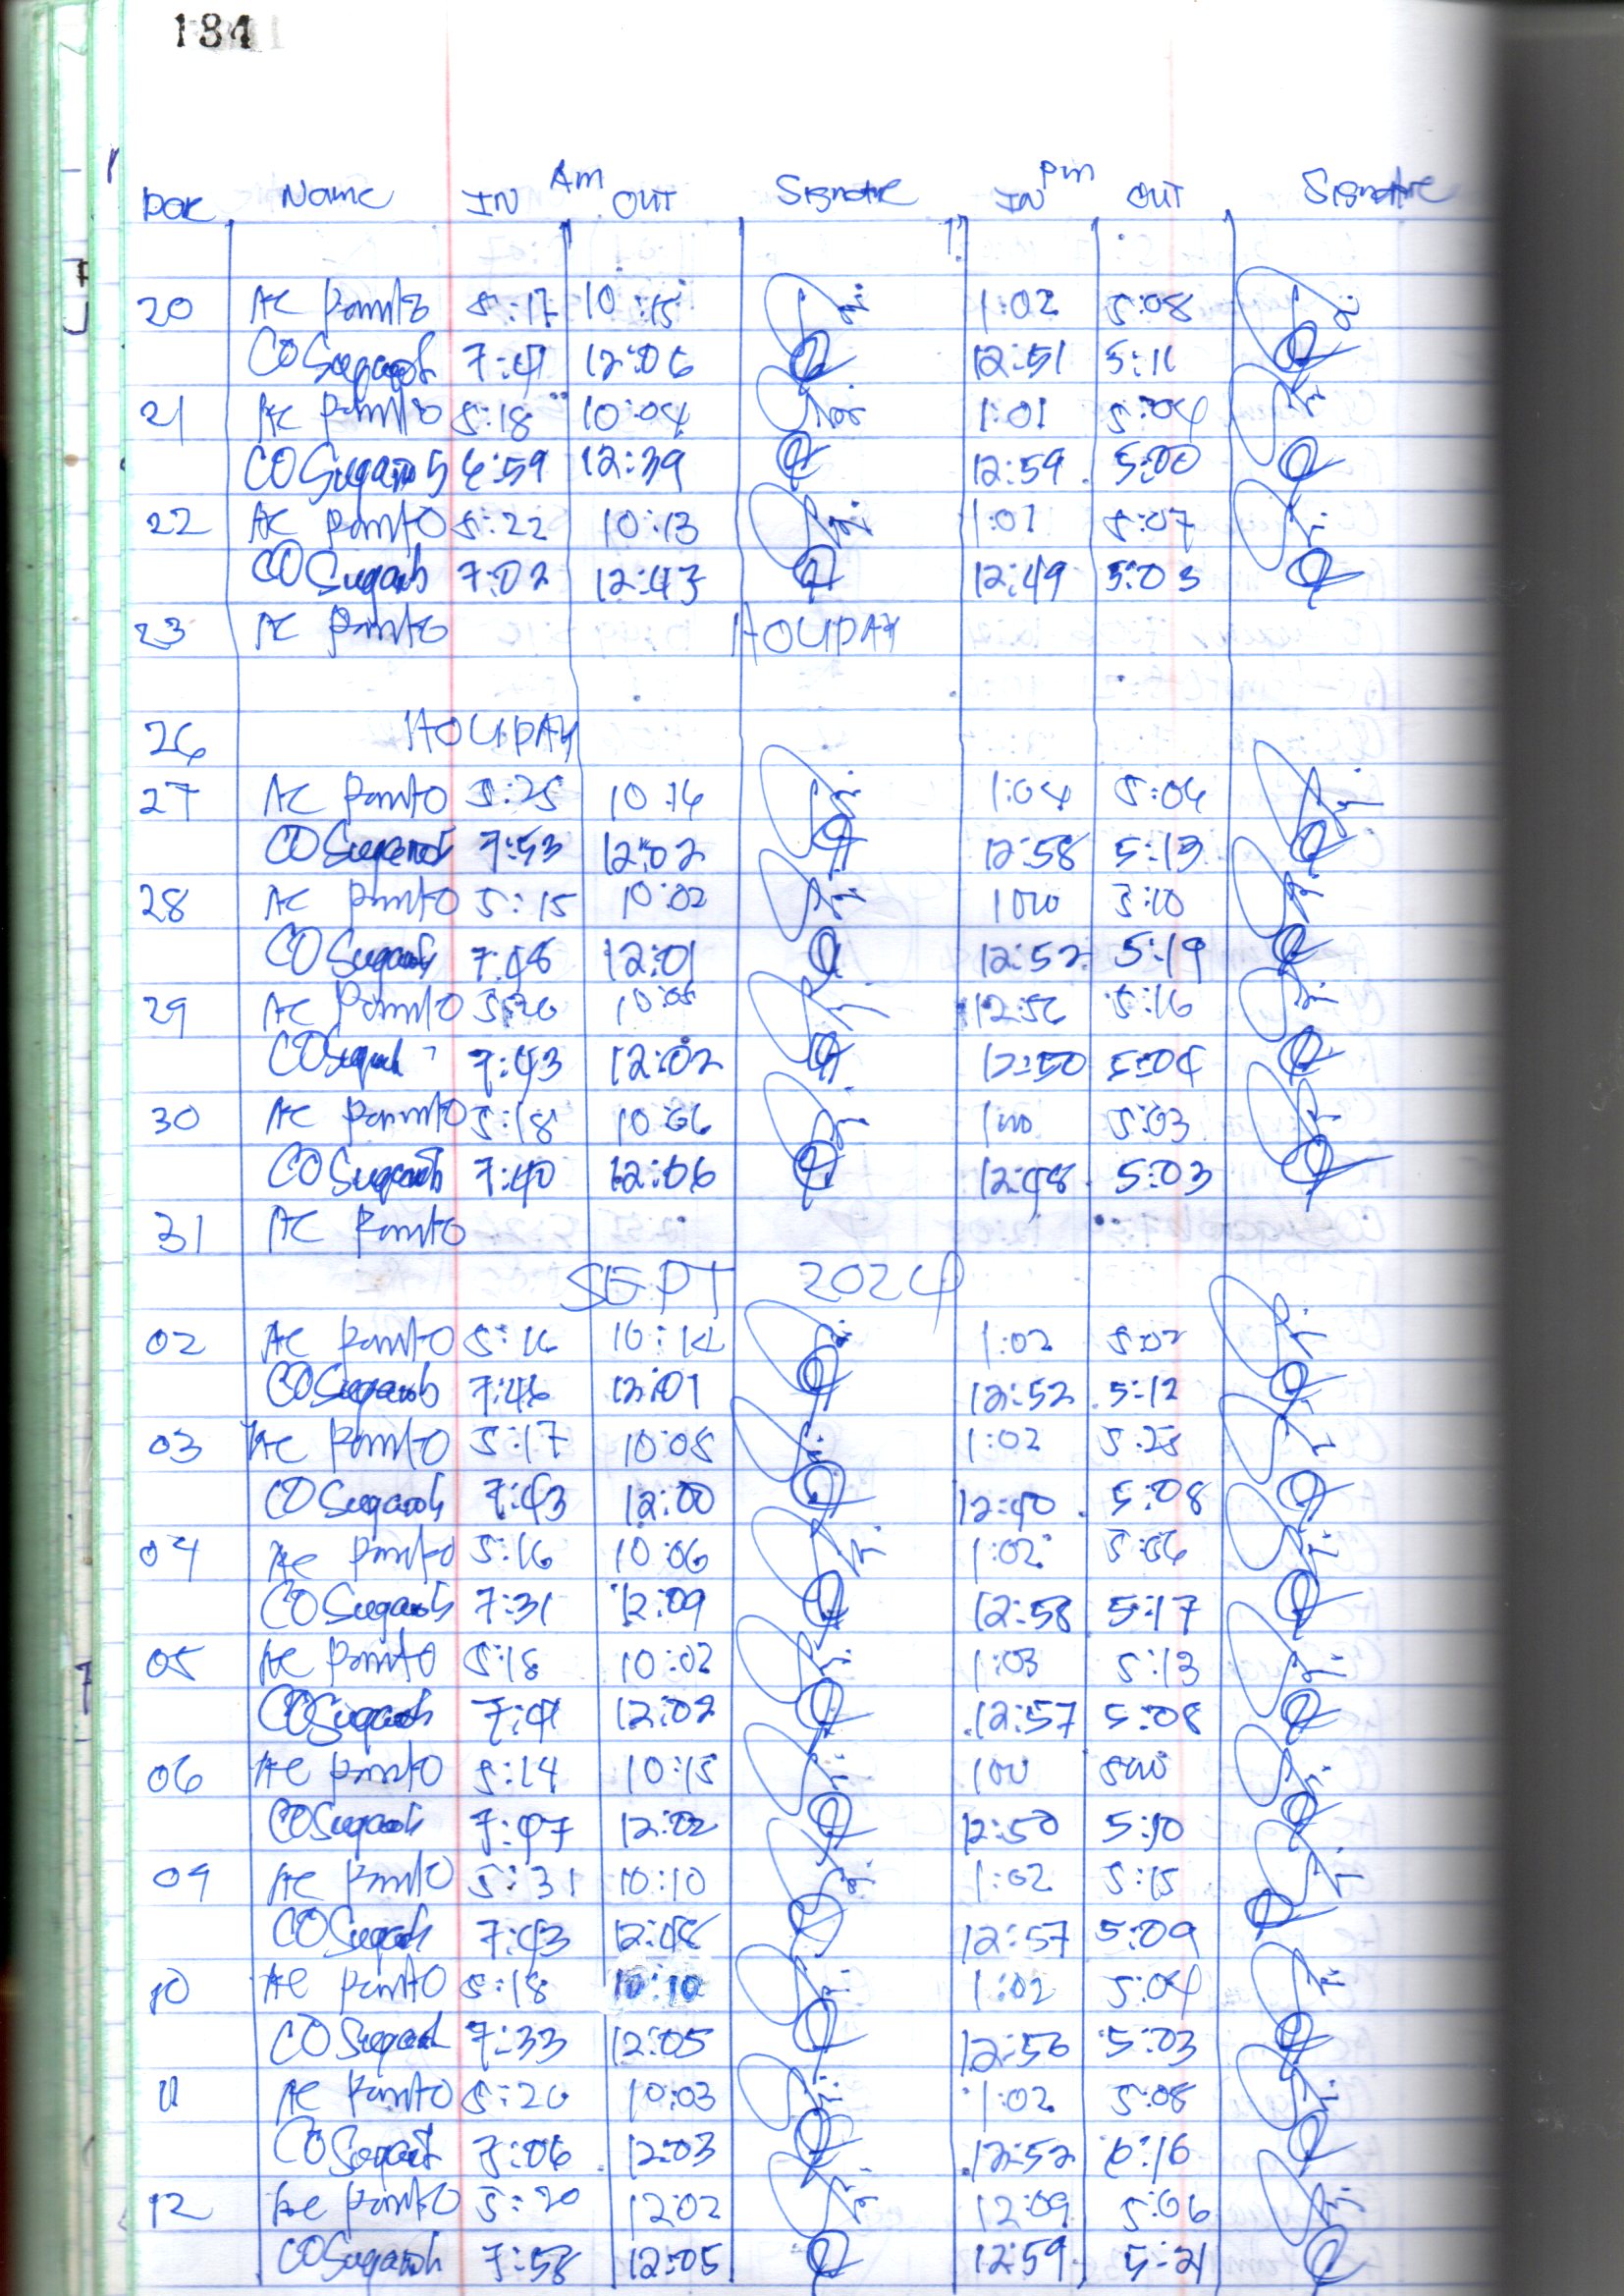 184
Am pm
Date Name IN OUT Signature IN OUT Signature
20 AC Pamito 5:17 10:15 1:02 5:08
CO Sugarol 7:41 12:06 12:51 5:11
21 AC Pamito 5:18 10:04 1:01 5:04
CO Sugarol 6:59 12:39 12:59 5:00
22 AC Pamito 5:22 10:13 1:01 5:07
CO Sugarol 7:02 12:43 12:49 5:03
23 AC Pamito HOLIDAY
26 HOLIDAY
27 AC Pamito 5:25 10:16 1:04 5:06
CO Sugarol 7:53 12:02 12:58 5:13
28 AC Pamito 5:15 10:02 100 5:10
CO Sugarol 7:48 12:01 12:52 5:19
29 AC Pamito 5:20 12:56 5:16
CO 7:43 12:02 12:50 5:04
30 AC Pamito 5:18 10:06 100 5:03
CO Sugarol 7:40 12:06 12:48 5:03
31 AC Pamito
SEPT 2024
02 AC Pamito 5:16 10:14 1:02 5:02
CO Sugarol 7:46 12:01 12:52 5:12
03 AC Pamito 5:17 10:08 1:02 5:28
CO Sugarol 7:43 12:00 12:40 5:08
04 AC Pamito 5:16 10:06 1:02 5:06
CO Sugarol 7:31 12:09 12:58 5:17
05 AC Pamito 5:18 10:02 1:03 5:13
CO Sugarol 7:41 12:02 12:57 5:08
06 AC Pamito 5:14 10:15 100 500
CO Sugarol 7:47 12:02 12:50 5:10
09 AC Pamito 5:31 10:10 1:02 5:15
CO Sugarol 7:43 12:08 12:57 5:09
10 AC Pamito 5:18 10:10 1:02 5:04
CO Sugarol 7:33 12:05 12:56 5:03
11 AC Pamito 5:20 10:03 1:02 5:08
CO Sugarol 7:06 12:03 12:52 6:16
12 AC Pamito 5:20 12:02 12:09 5:06
CO Sugarol 7:58 12:05 12:59 5:21